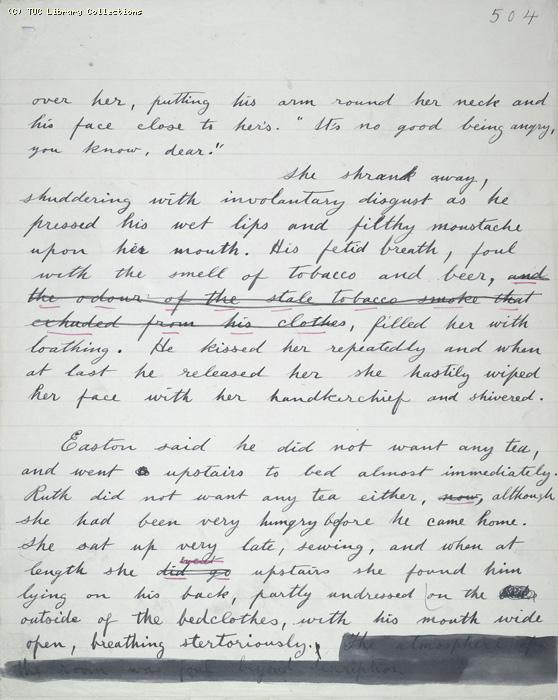 (C) TUC Library Collections
504
over her, putting his arm round her neck and
his face close to her's. "It's no good being angry,
you know, dear."
She shrank away,
shuddering with involuntary disgust as he
pressed his wet lips and filthy moustache
upon her mouth. His fetid breath, foul
with the smell of tobacco and beer, and
the odour of the stale tobacco smoke that
exhaded from his clothes, filled her with
loathing. He kissed her repeatedly and when
at last he released her she hastily wiped
her face with her handkerchief and shivered.
Easton said he did not want any tea,
and went upstairs to bed almost immediately.
Ruth did not want any tea either, now, although
she had been very hungry before he came home.
She sat up very late, sewing, and when at
went
length she did go upstairs she found him
lying on his back, partly undressed on the
outside of the bedclothes, with his mouth wide
open, breathing stertoriously. The atmosphere of
the room was foul beyond description